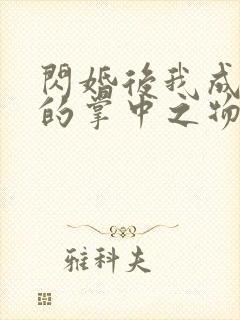 閃婚後我成
的掌中之物
雅科夫